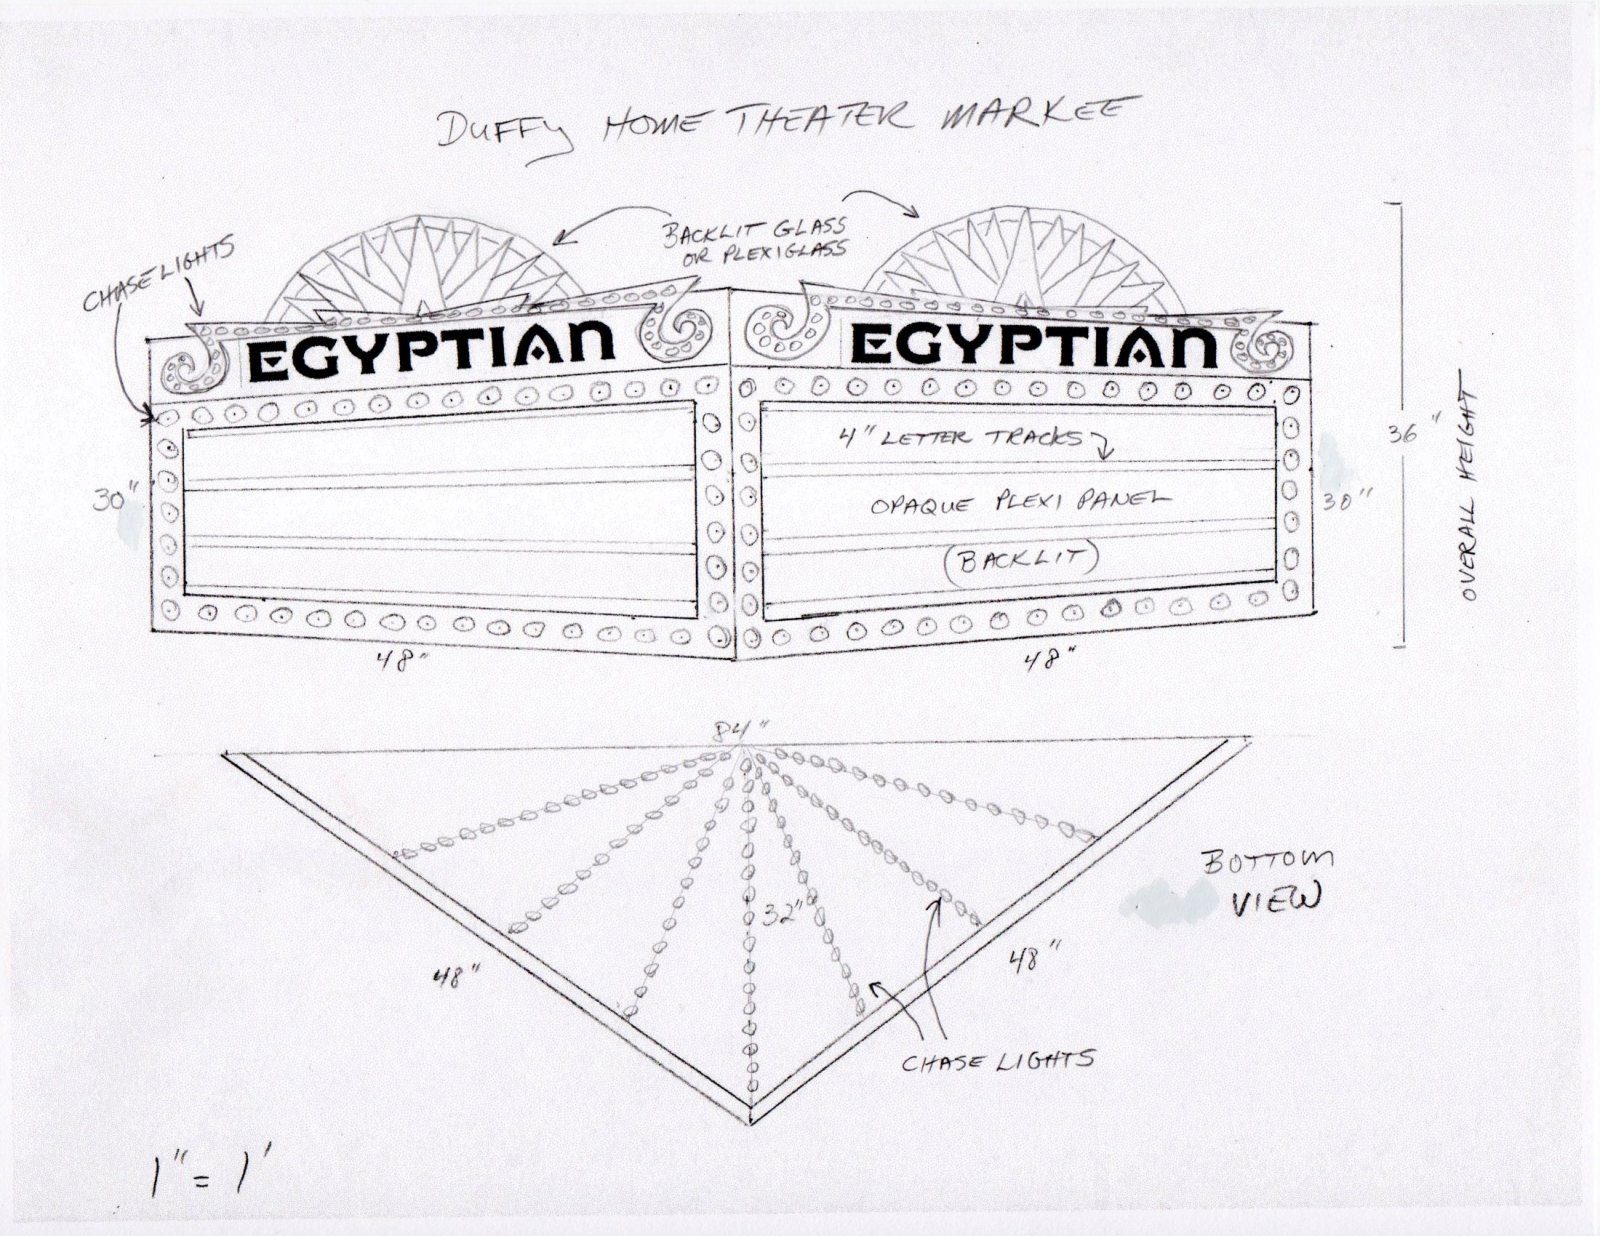 DUFFY HOME THEATER MARKEE
CHASE LIGHTS
BACKLIT GLASS
OR PLEXIGLASS
EGYPTIAN
EGYPTIAN
4" LETTER TRACKS
OPAQUE PLEXI PANEL
(BACKLIT)
30"
30"
36"
OVERALL HEIGHT
48"
48"
84"
32"
BOTTOM
VIEW
48"
48"
CHASE LIGHTS
1" = 1'